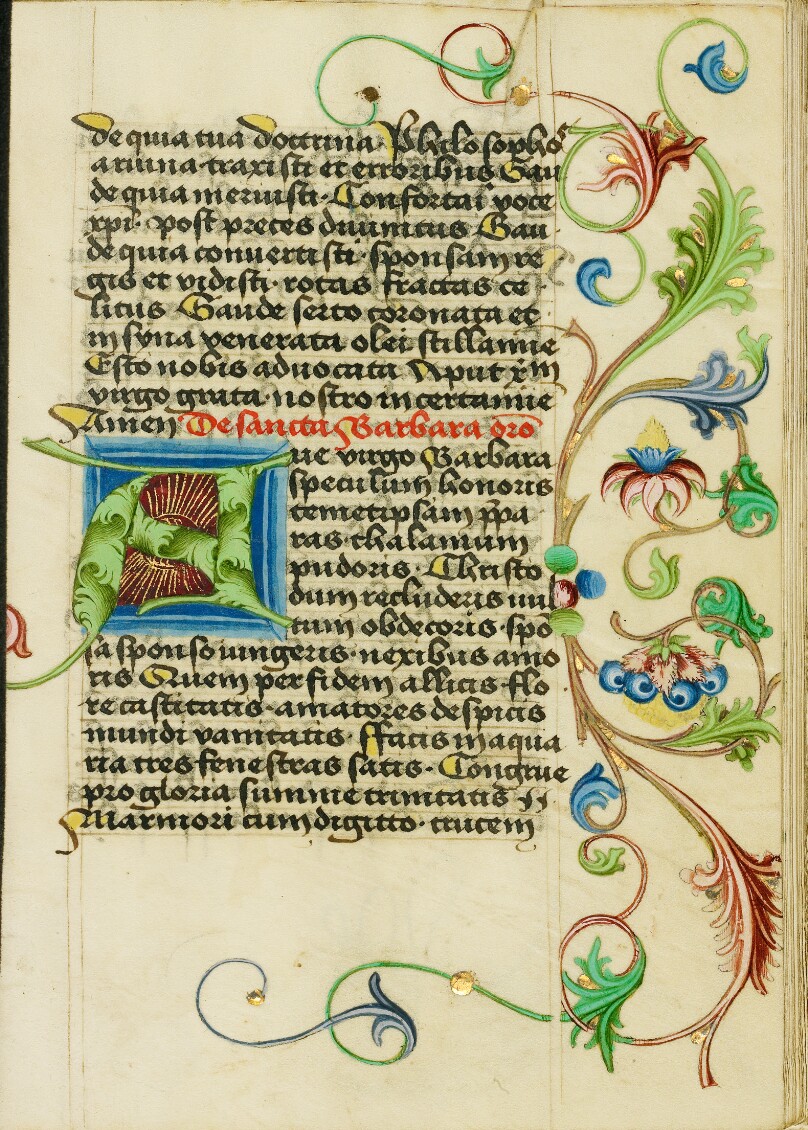 de quia tua doctrina Philosophoꝝ
aruina traxisti et erroribus Gau
de quia meruisti· Confortai voce
xpi· post preces diuinitus Gau
de quia conuertisti· sponsam re
gis et vidisti· rotas fractas ce
litus Gaude serto coronata et
in syna venerata olei stillamie
Esto nobis aduocata Aput xm̄
virgo grata nostro in certamie
Amen De sancta Barbara oro
Aue virgo Barbara
speculum honoris
temetipsam p̄pa
ras thalamum
pudoris· Christo
dum recluderis uul
tum obdecoris· spo
sa sponso iungeris· nexibus amo
ris Quem per fidem allicis flo
re castitatis· amatores despicis
mundi vanitatis· Facis in aqua
ria tres fenestras satis· Congrue
pro gloria summe trinitatis
Marmori cum digitto· crucem